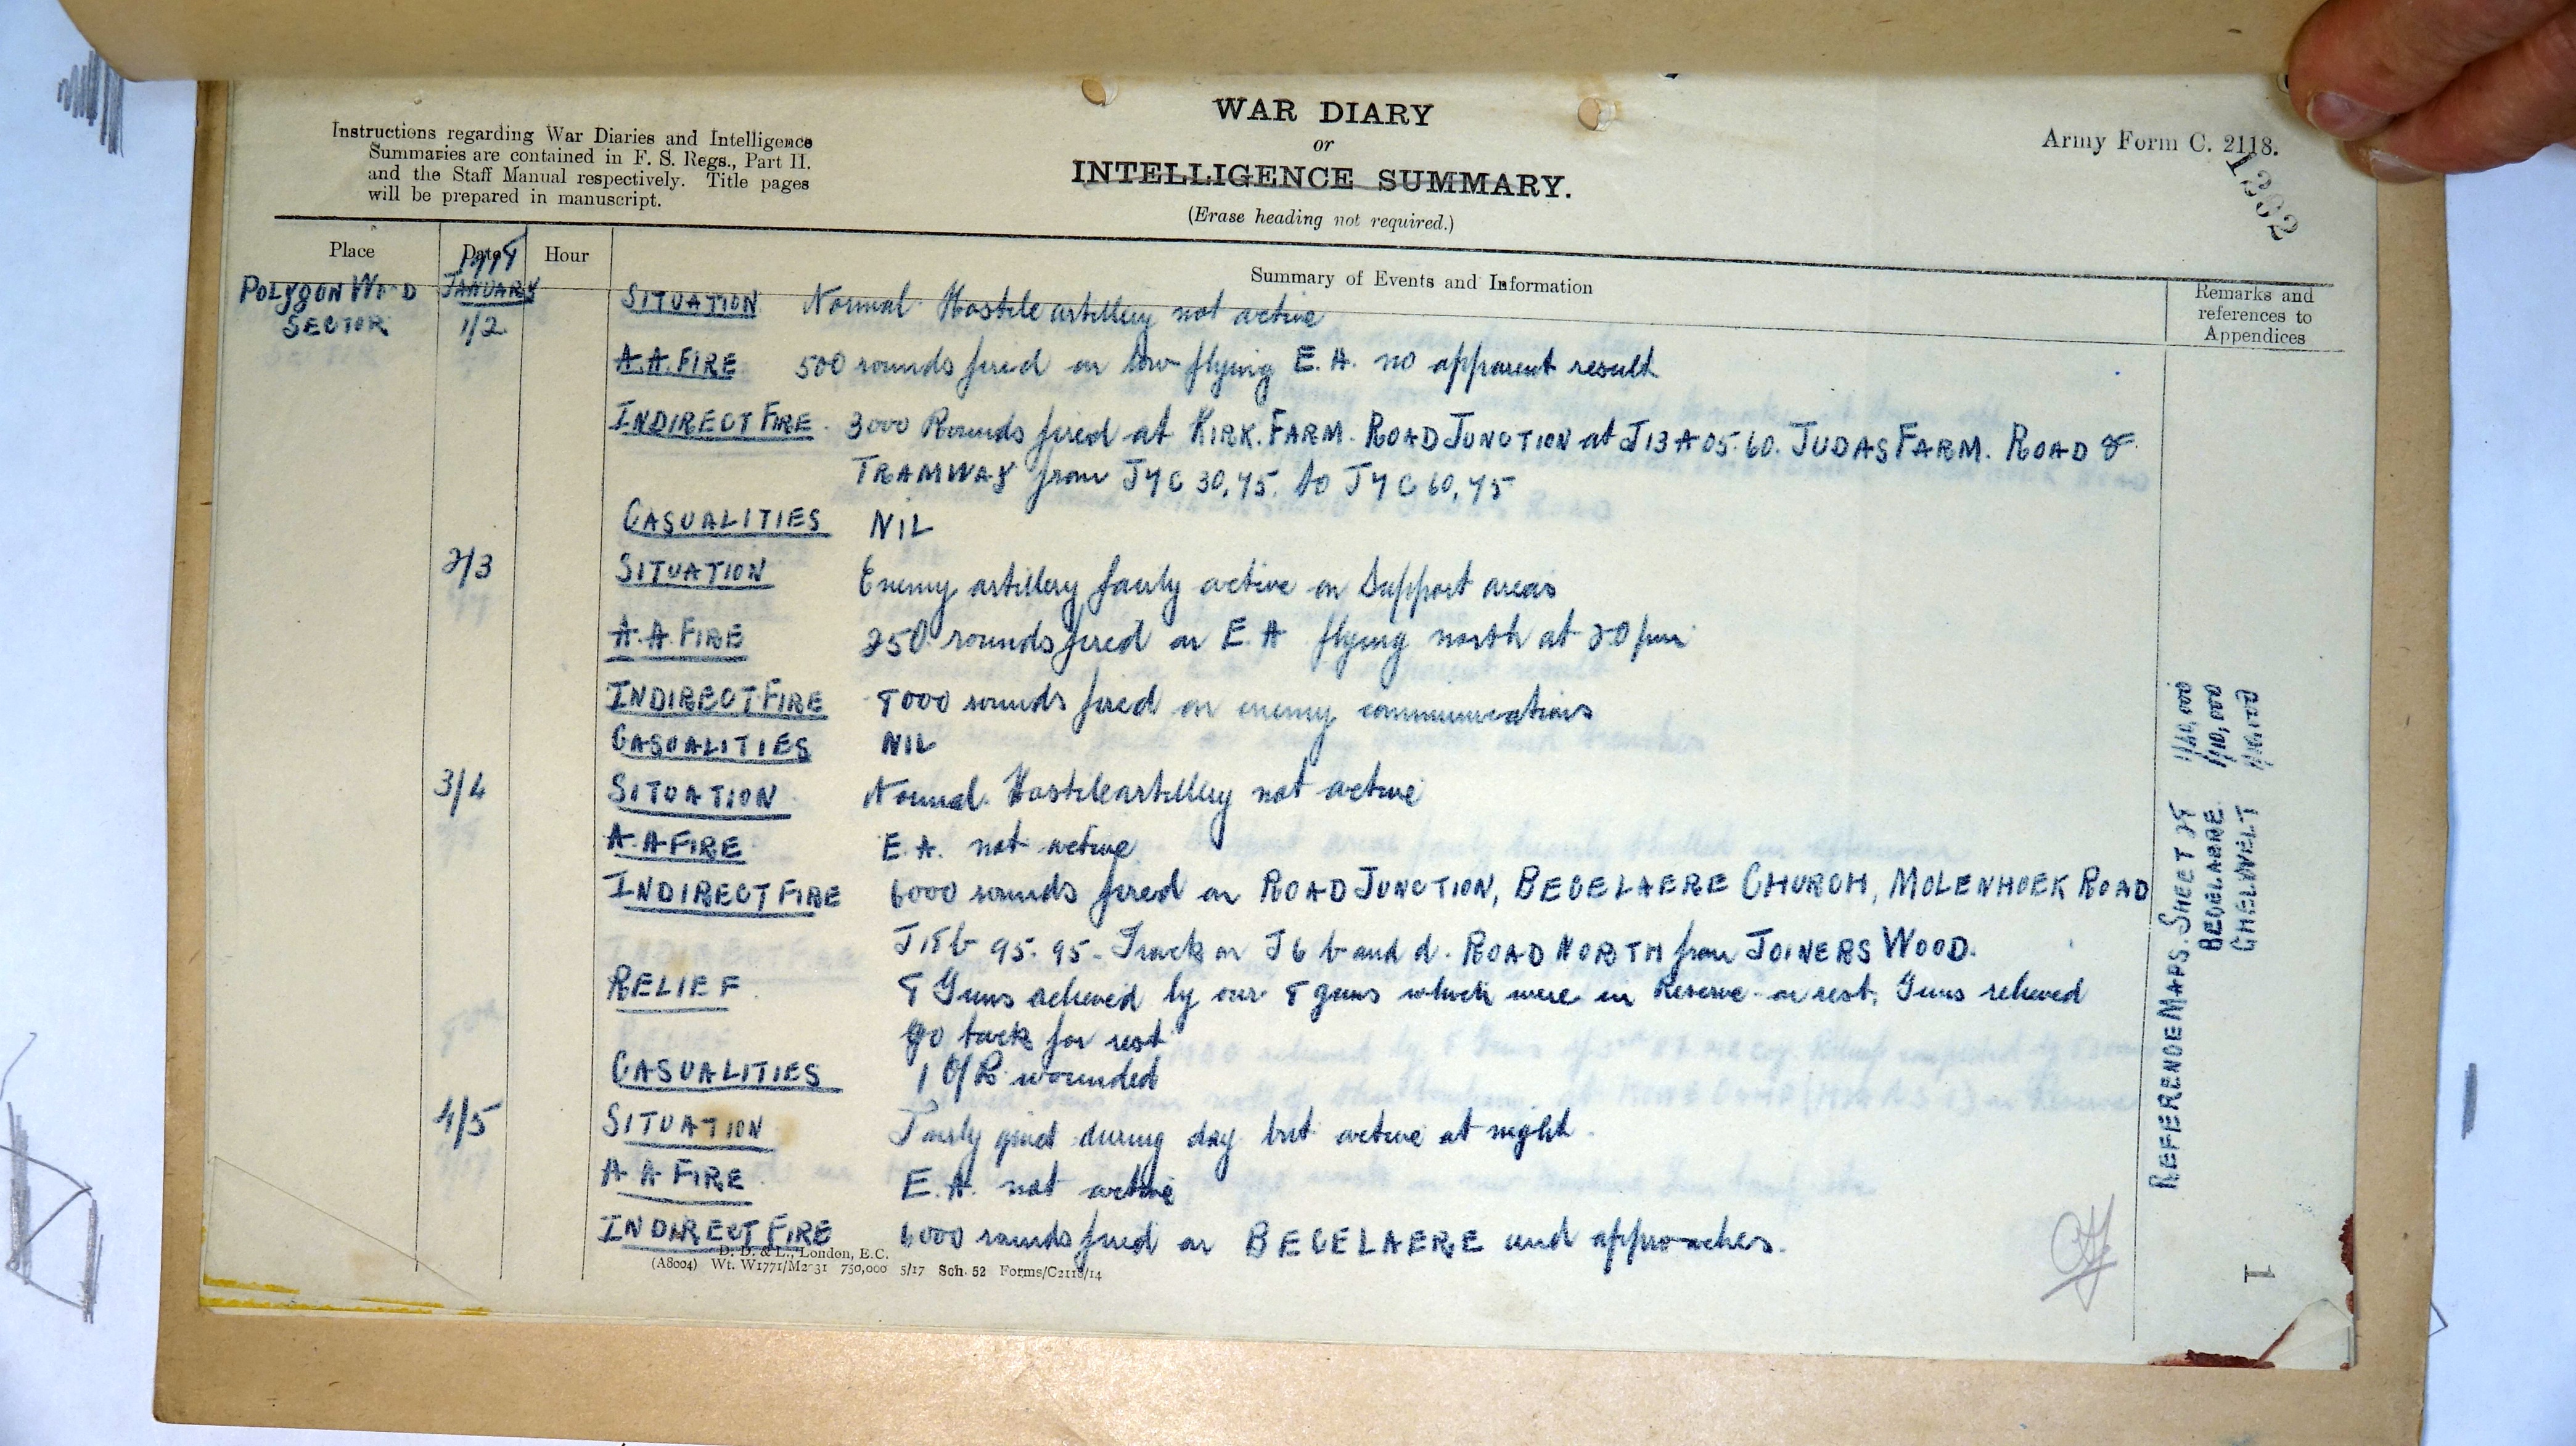 Instructions regarding War Diaries and Intelligence
Summaries are contained in F. S. Regs., Part II.
and the Staff Manual respectively. Title pages
will be prepared in manuscript.
WAR DIARY
or
INTELLIGENCE SUMMARY.
(Erase heading not required.)
Army Form C. 2118.
1392
Place Date Hour Summary of Events and Information Remarks and references to Appendices
1918
POLYGON WOOD JANUARY SITUATION Normal Hostile artillery not active
SECTOR 1/2
A.A. FIRE 500 rounds fired on low flying E.A. no apparent result
INDIRECT FIRE. 3000 Rounds fired at KIRK. FARM. ROAD JUNCTION at J13 A 05.60. JUDAS FARM. ROAD &
TRAMWAY from J7C 30,75. to J7C 60,75
CASUALITIES NIL
2/3 SITUATION Enemy artillery fairly active on Support areas
A.A. FIRE 250 rounds fired on E.A flying north at 2.0 pm
INDIRECT FIRE 8000 rounds fired on enemy communications
CASUALITIES NIL
3/4 SITUATION Normal. Hostile artillery not active
A.A FIRE E.A. not active
INDIRECT FIRE 6000 rounds fired on ROAD JUNCTION, BECELAERE CHURCH, MOLENHOEK ROAD
J18b 95.95 - Track on J6 b and d. ROAD NORTH from JOINERS WOOD.
RELIEF 8 Guns relieved by our 8 guns which were in Reserve or rest, Guns relieved
go back for rest
CASUALITIES 1 O/R wounded
4/5 SITUATION Fairly quiet during day but active at night.
A A FIRE E.A. not active
INDIRECT FIRE 6000 rounds fired on BECELAERE and approaches.
REFERENCE MAPS. SHEET 28 1/40,000
BECELAERE. 1/10,000
GHELUVELT 1/10,000
D. D. & L., London, E.C.
(A8004) Wt. W1771/M2031 750,000 5/17 Sch. 52 Forms/C2118/14
1